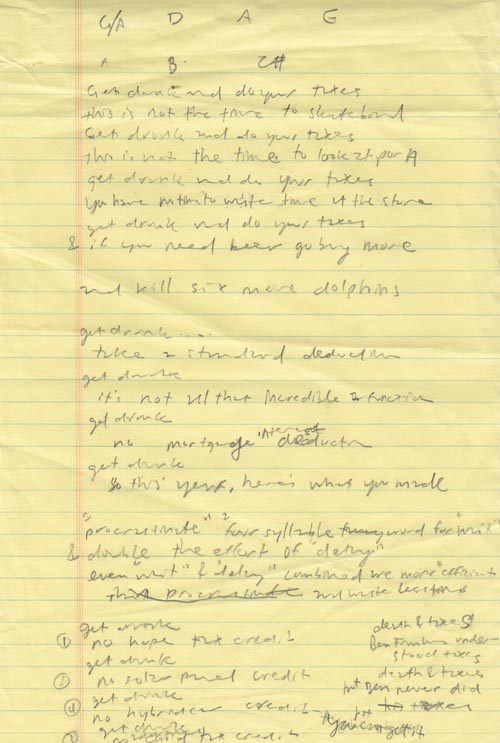 G/A D A E
A B C#
Get drunk and do your taxes
this is not the time to skateboard
Get drunk and do your taxes
this is not the time to look at
get drunk and do your taxes
you have no time to waste time at the store
get drunk and do your taxes
& if you need beer go buy more
and kill six more dolphins
get drunk.....
take a standard deduction
get drunk
it's not all that incredible a function
get drunk
no mortgage interest deduction
get drunk
so this year, here's what you made
"procrastinate" a four syllable word for "wait"
& double the effort of "delay"
even "wait" & "delay" combined are more efficient
and waste less time
get drunk
① no hope tax credit
get drunk
③ no solar panel credit
get drunk
④ no hybrid car credit
get drunk
② no child tax credit
death & taxes
Ben Franklin under-
stood taxes
death & taxes
but Ben never did